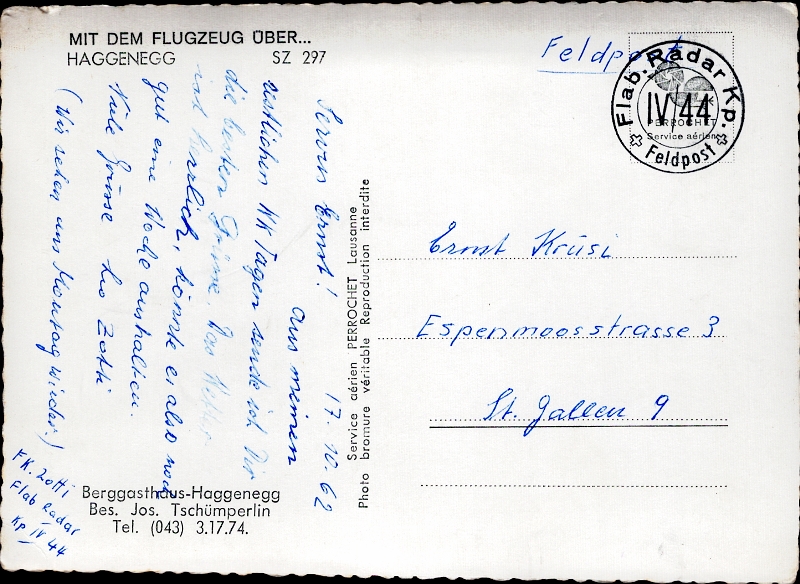 MIT DEM FLUGZEUG ÜBER...
HAGGENEGG SZ 297
Servus Ernst! 17.10.62
Aus meinen
restlichen WK Tagen sende ich Dir
die besten Grüsse. Das Wetter
ist herrlich, könnte es also noch
gut eine Woche aushalten.
Viele Grüsse Leo Zotti
(Wir sehen uns Montag wieder!)
FK. Zotti
Flab Radar
Kp IV 44
Berggasthaus-Haggenegg
Bes. Jos. Tschümperlin
Tel. (043) 3.17.74.
Service aérien PERROCHET Lausanne
Photo bromure véritable Reproduction interdite
Feldpost
Flab. Radar Kp.
IV 44
PERROCHET
Service aérien
Feldpost
Ernst Krüsi
Espenmoosstrasse 3
St. Gallen 9